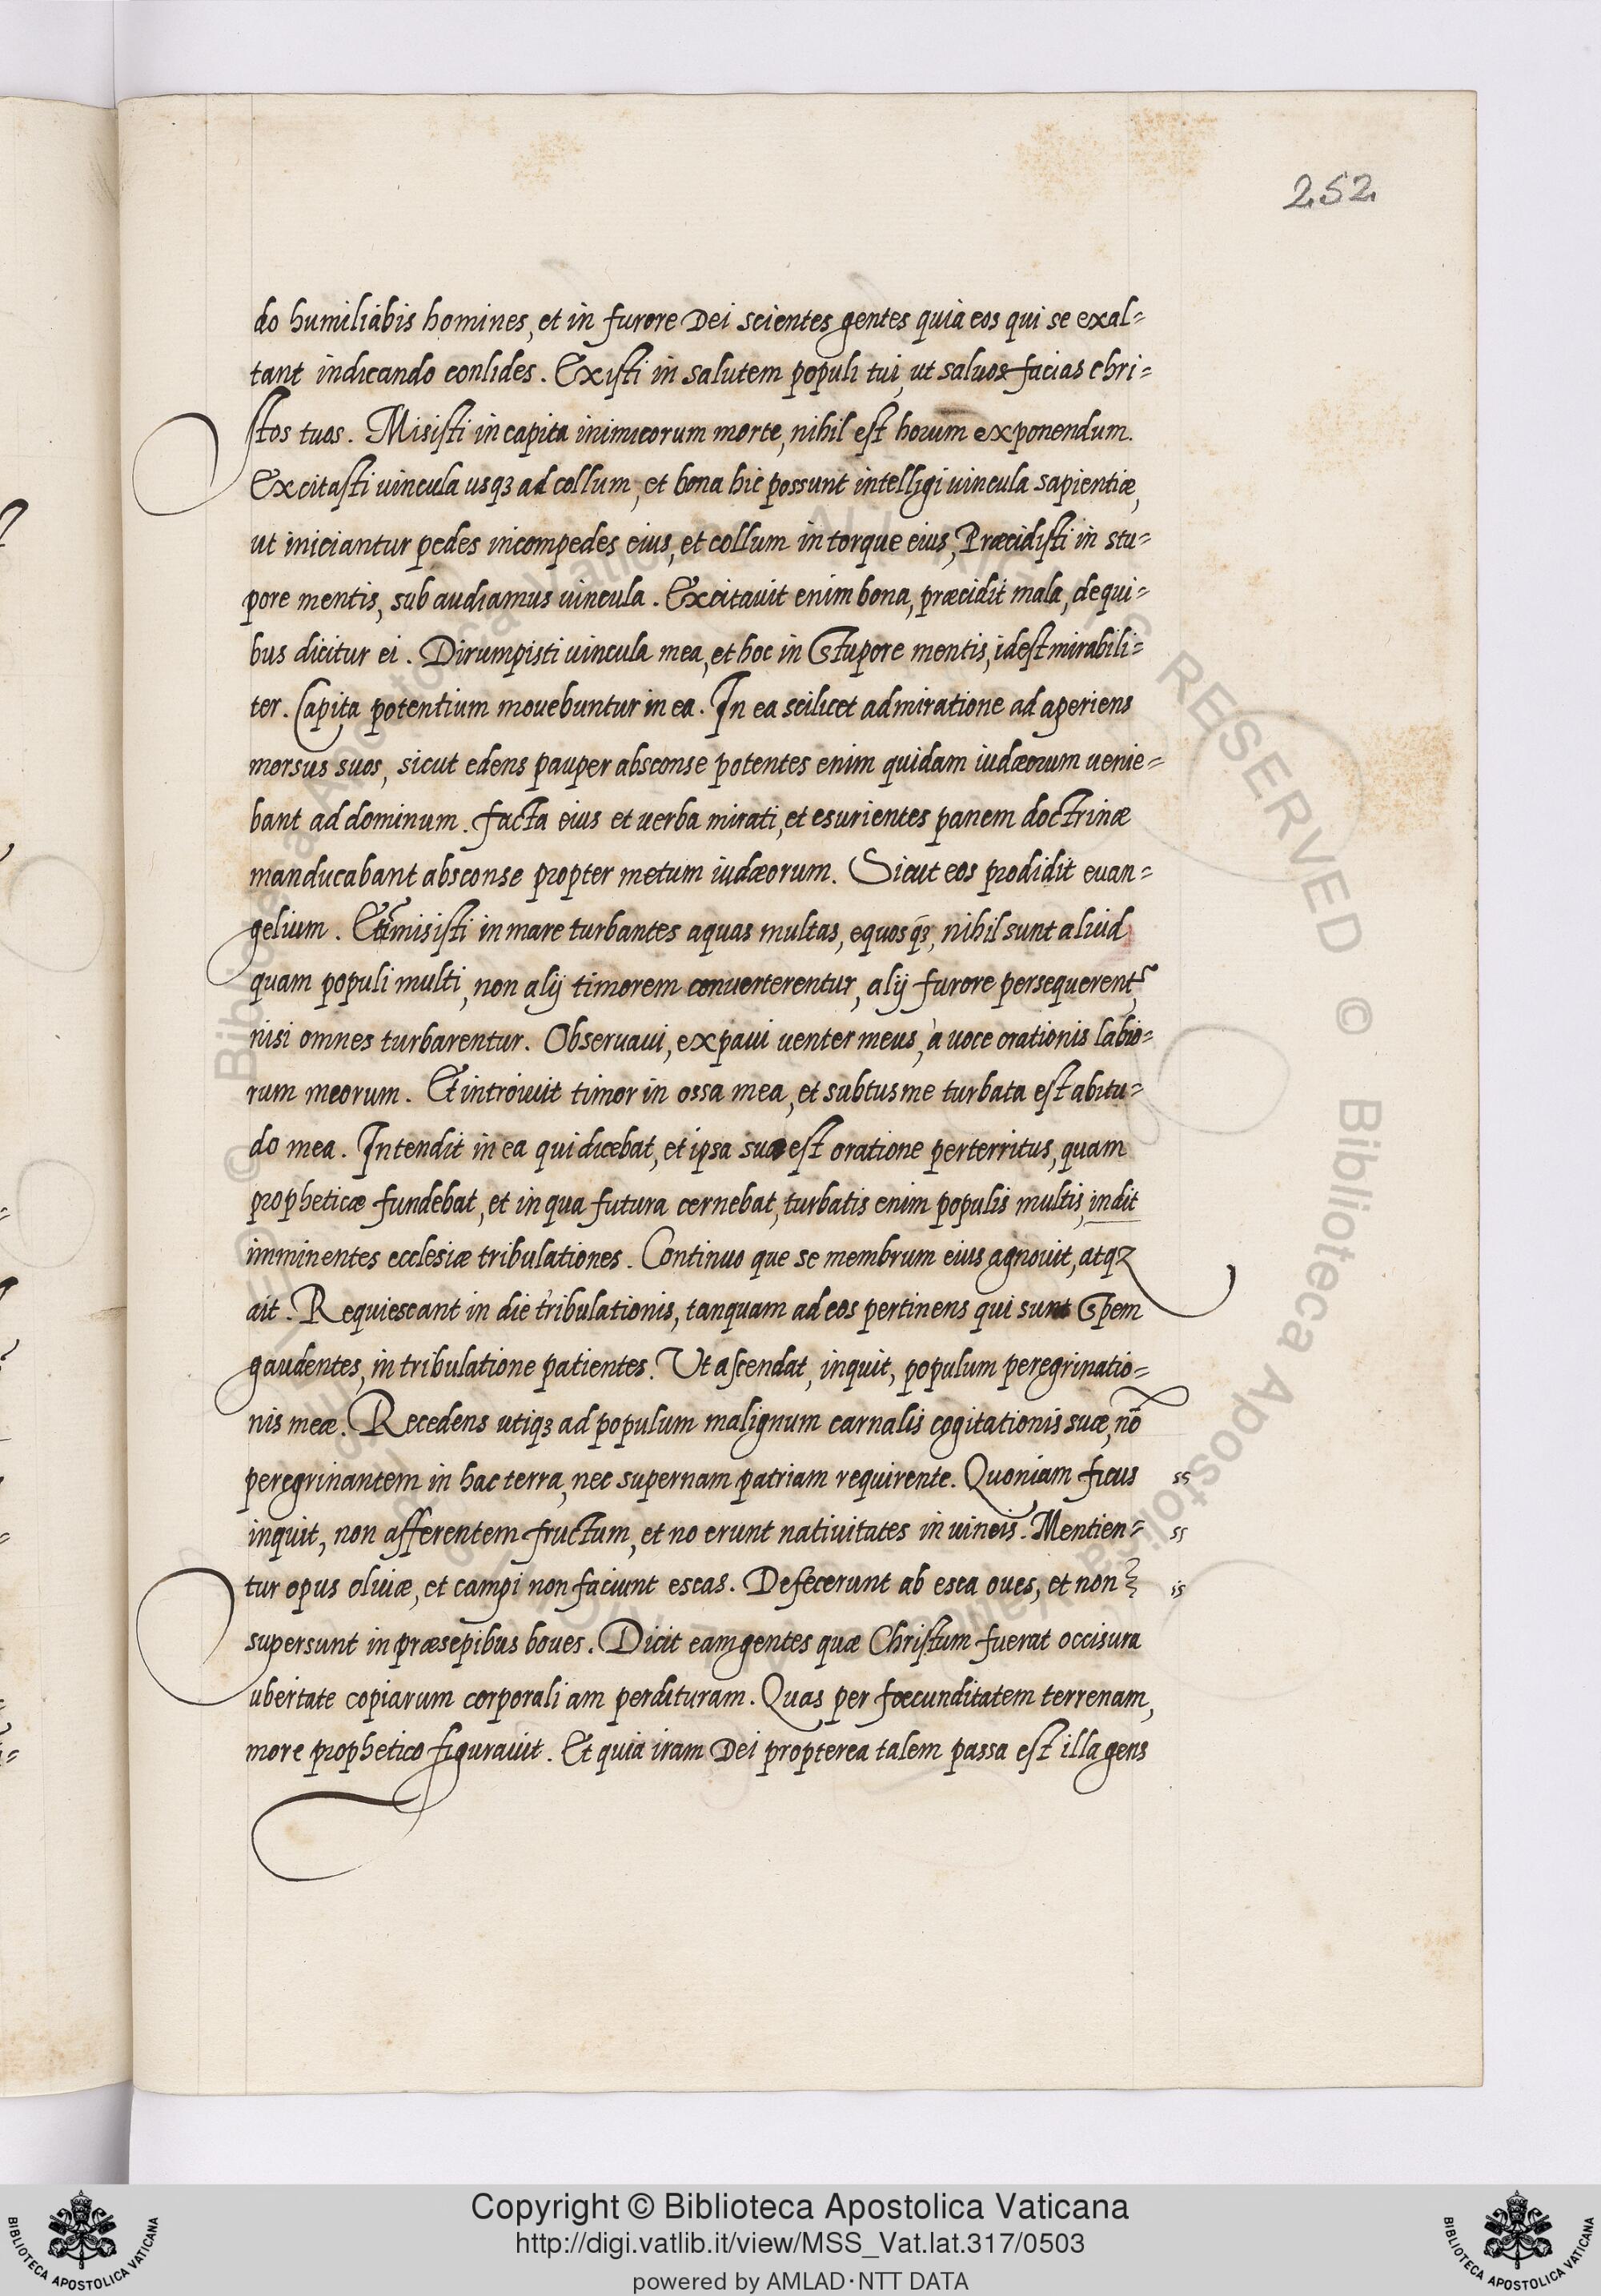 252
do humiliabis homines, et in furore Dei scientes gentes quia eos qui se exal=
tant indicando conlides. Existi in salutem populi tui, ut saluos facias chri=
stos tuos. Misisti in capita inimicorum morte, nihil est horum exponendum.
Excitasti uincula usqꝫ ad collum, et bona hic possunt intelligi uincula sapientiæ,
ut iniciantur pedes incompedes eius, et collum in torque eius, Præcidisti in stu=
pore mentis, sub audiamus uincula. Excitauit enim bona, præcidit mala, de qui=
bus dicitur ei. Dirumpisti uincula mea, et hoc in Stupore mentis, id est mirabili=
ter. Capita potentium mouebuntur in ea. In ea scilicet admiratione ad aperiens
morsus suos, sicut edens pauper absconse potentes enim quidam iudæorum uenie=
bant ad dominum. facta eius et uerba mirati, et esurientes panem doctrinæ
manducabant absconse propter metum iudæorum. Sicut eos prodidit euan=
gelium. Et misisti in mare turbantes aquas multas, equos qꝫ, nihil sunt aliud
quam populi multi, non alij timorem conuerterentur, alij furore persequerent᷑
nisi omnes turbarentur. Obseruaui, expaui uenter meus, à uoce orationis labio=
rum meorum. Et introiuit timor in ossa mea, et subtus me turbata est abitu=
do mea. Intendit in ea qui dicebat, et ipsa sua est oratione perterritus, quam
propheticæ fundebat, et in qua futura cernebat, turbatis enim populis multis, indit
imminentes ecclesiæ tribulationes. Continuo que se membrum eius agnouit, atqꝫ
ait. Requiescant in die tribulationis, tanquam ad eos pertinens qui sunt Spem
gaudentes, in tribulatione patientes. Ut ascendat, inquit, populum peregrinatio=
nis meæ. Recedens utiqꝫ ad populum malignum carnalis cogitationis suæ, nō
peregrinantem in hac terra, nec supernam patriam requirente. Quoniam ficus ss
inquit, non afferentem fructum, et no erunt natiuitates in uineis. Mentien= ss
tur opus oliuæ, et campi non faciunt escas. Defecerunt ab esca oues, et non is
supersunt in præsepibus boues. Dicit eam gentes quæ Christum fuerat occisura
ubertate copiarum corporali am perdituram. Quas per fœcunditatem terrenam,
more prophetico figurauit. Et quia iram Dei propterea talem passa est illa gens
© Biblioteca Apostolica Vaticana
Copyright © Biblioteca Apostolica Vaticana
http://digi.vatlib.it/view/MSS_Vat.lat.317/0503
powered by AMLAD·NTT DATA
BIBLIOTECA APOSTOLICA VATICANA
BIBLIOTECA APOSTOLICA VATICANA